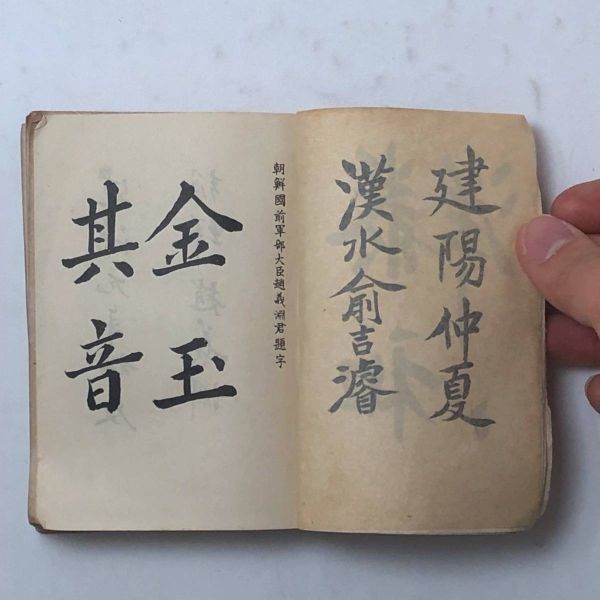 建陽仲夏
漢水俞吉濬
朝鮮國前軍部大臣趙義淵君題字
金玉
其音